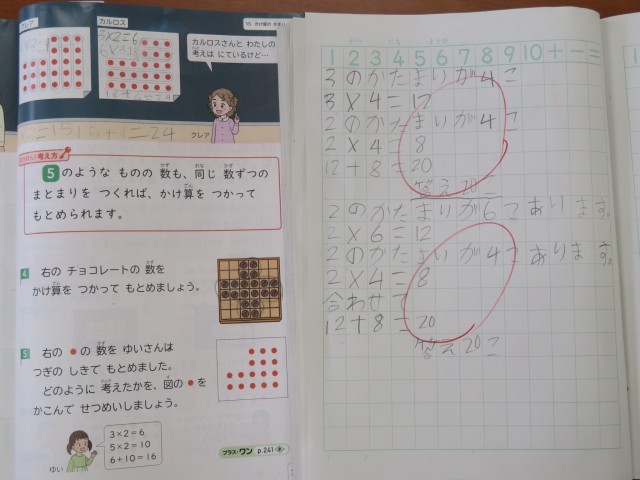 カルロス
5×2=6
カルロスさんと わたしの
考えは にているけど…
クレア
考え方
5のような ものの 数も、同じ 数ずつの
まとまりを つくれば、かけ算を つかって
もとめられます。
4 右の チョコレートの 数を
かけ算を つかって もとめましょう。
5 右の ●の 数を ゆいさんは
つぎの しきで もとめました。
どのように 考えたかを、図の ●を
かこんで せつめいしましょう。
3×2=6
5×2=10
6+10=16
ゆい
プラス・ワン p.241
1 2 3 4 5 6 7 8 9 10 + − =
3のかたまりが4こ
3×4=12
2のかたまりが4こ
2×4=8
12+8=20
答え20こ
2のかたまりが6こあります。
2×6=12
2のかたまりが4こあります。
2×4=8
合わせて
12+8=20
答え20こ